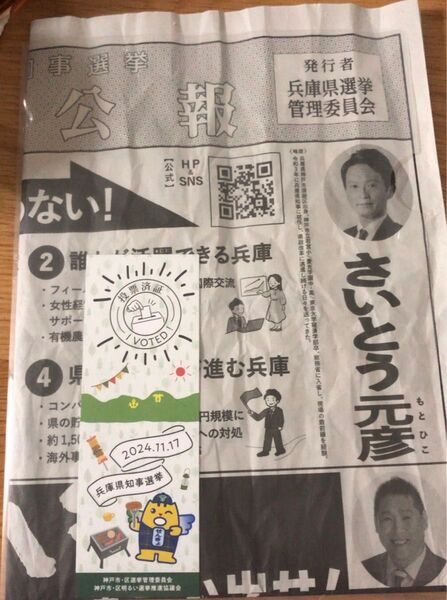 知事選挙
公報
発行者
兵庫県選挙
管理委員会
【公式】
HP
&
SNS
ない!
さいとう元彦
もとひこ
2
できる兵庫
・フィー
・女性
サポー
・有機農
国際交流
4 県
進む兵庫
・コンパ
・県の貯
・約1,50
・海外事
円規模に
への対処
投票済証
I VOTED!
2024.11.17
兵庫県知事選挙
神戸市・区選挙管理委員会
神戸市・区明るい選挙推進協議会
出せ!